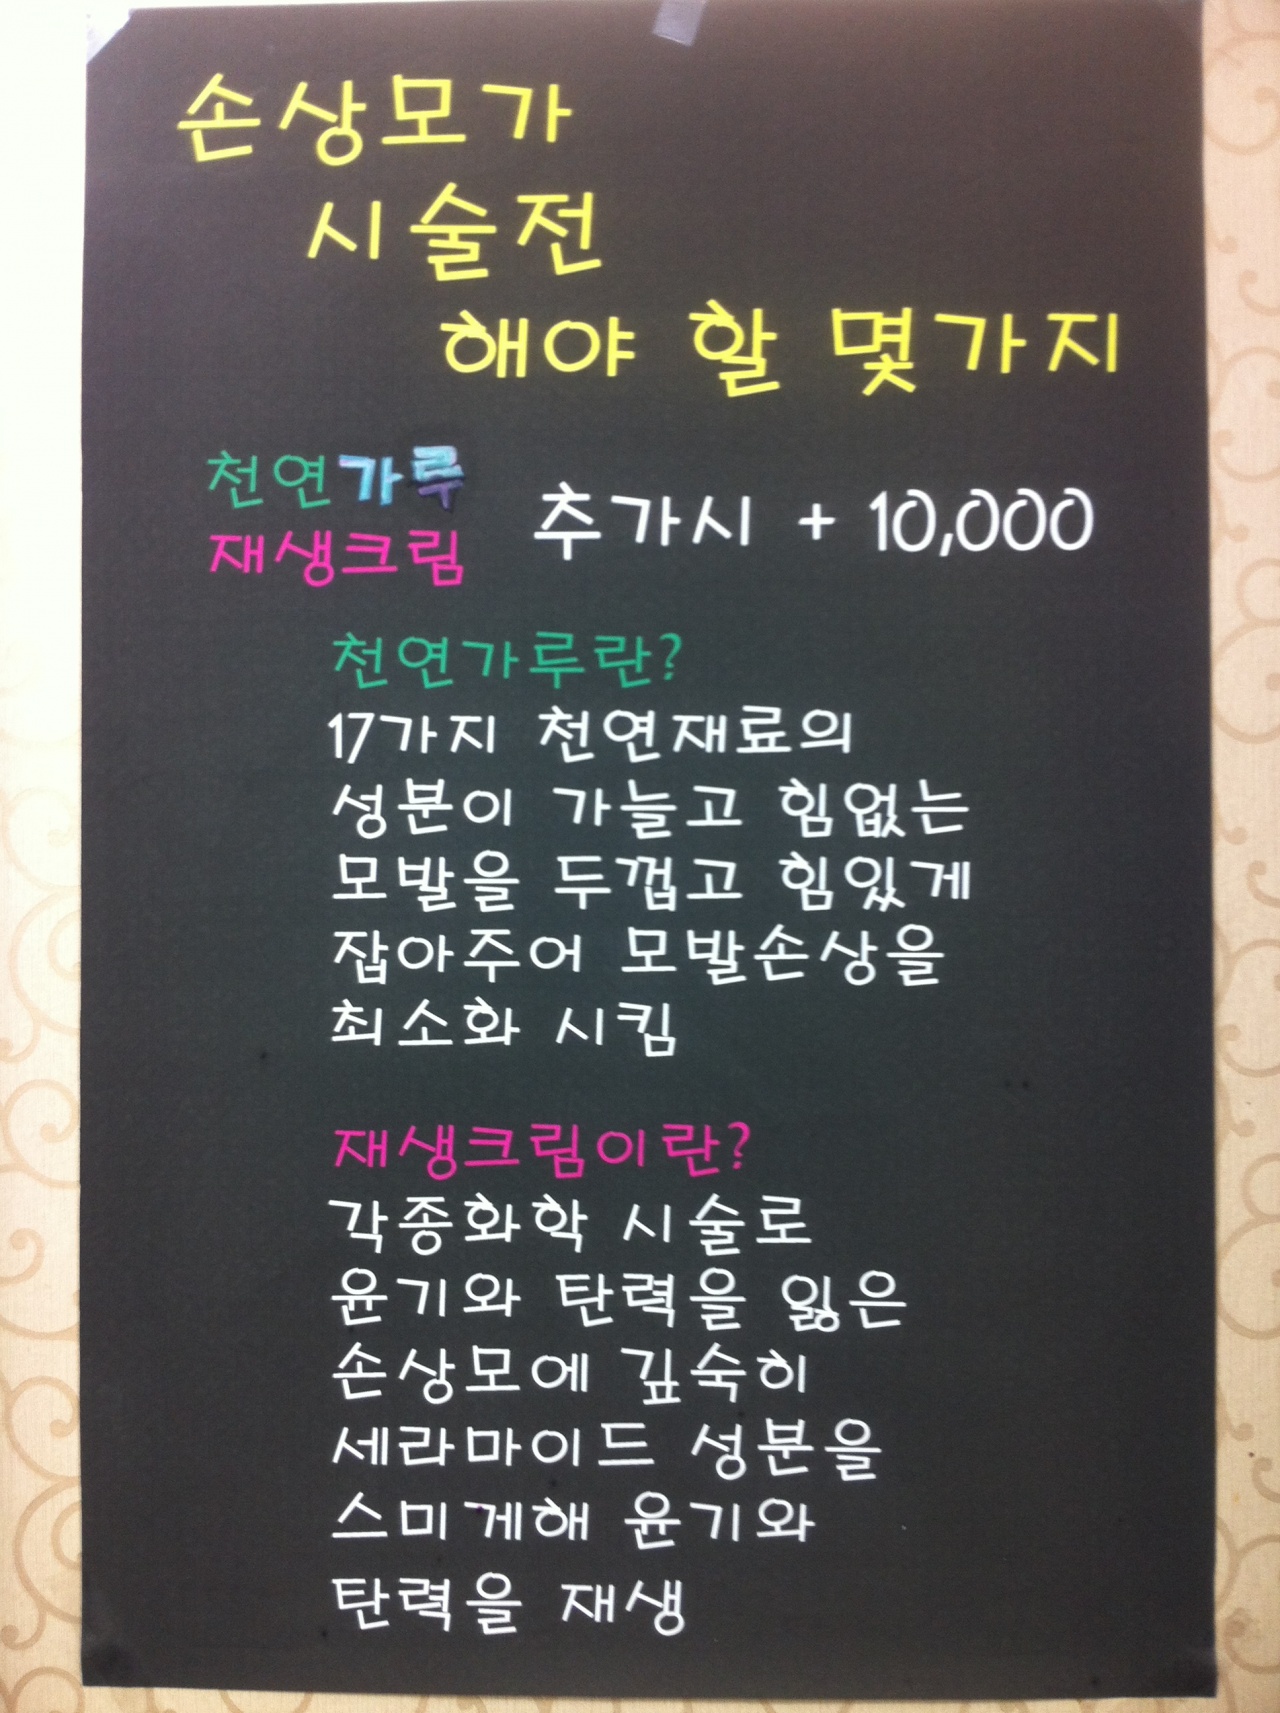 손상모가
시술전
해야 할 몇가지
천연가루
재생크림
추가시 + 10,000
천연가루란?
17가지 천연재료의
성분이 가늘고 힘없는
모발을 두껍고 힘있게
잡아주어 모발손상을
최소화 시킴
재생크림이란?
각종화학 시술로
윤기와 탄력을 잃은
손상모에 깊숙히
세라마이드 성분을
스미게해 윤기와
탄력을 재생